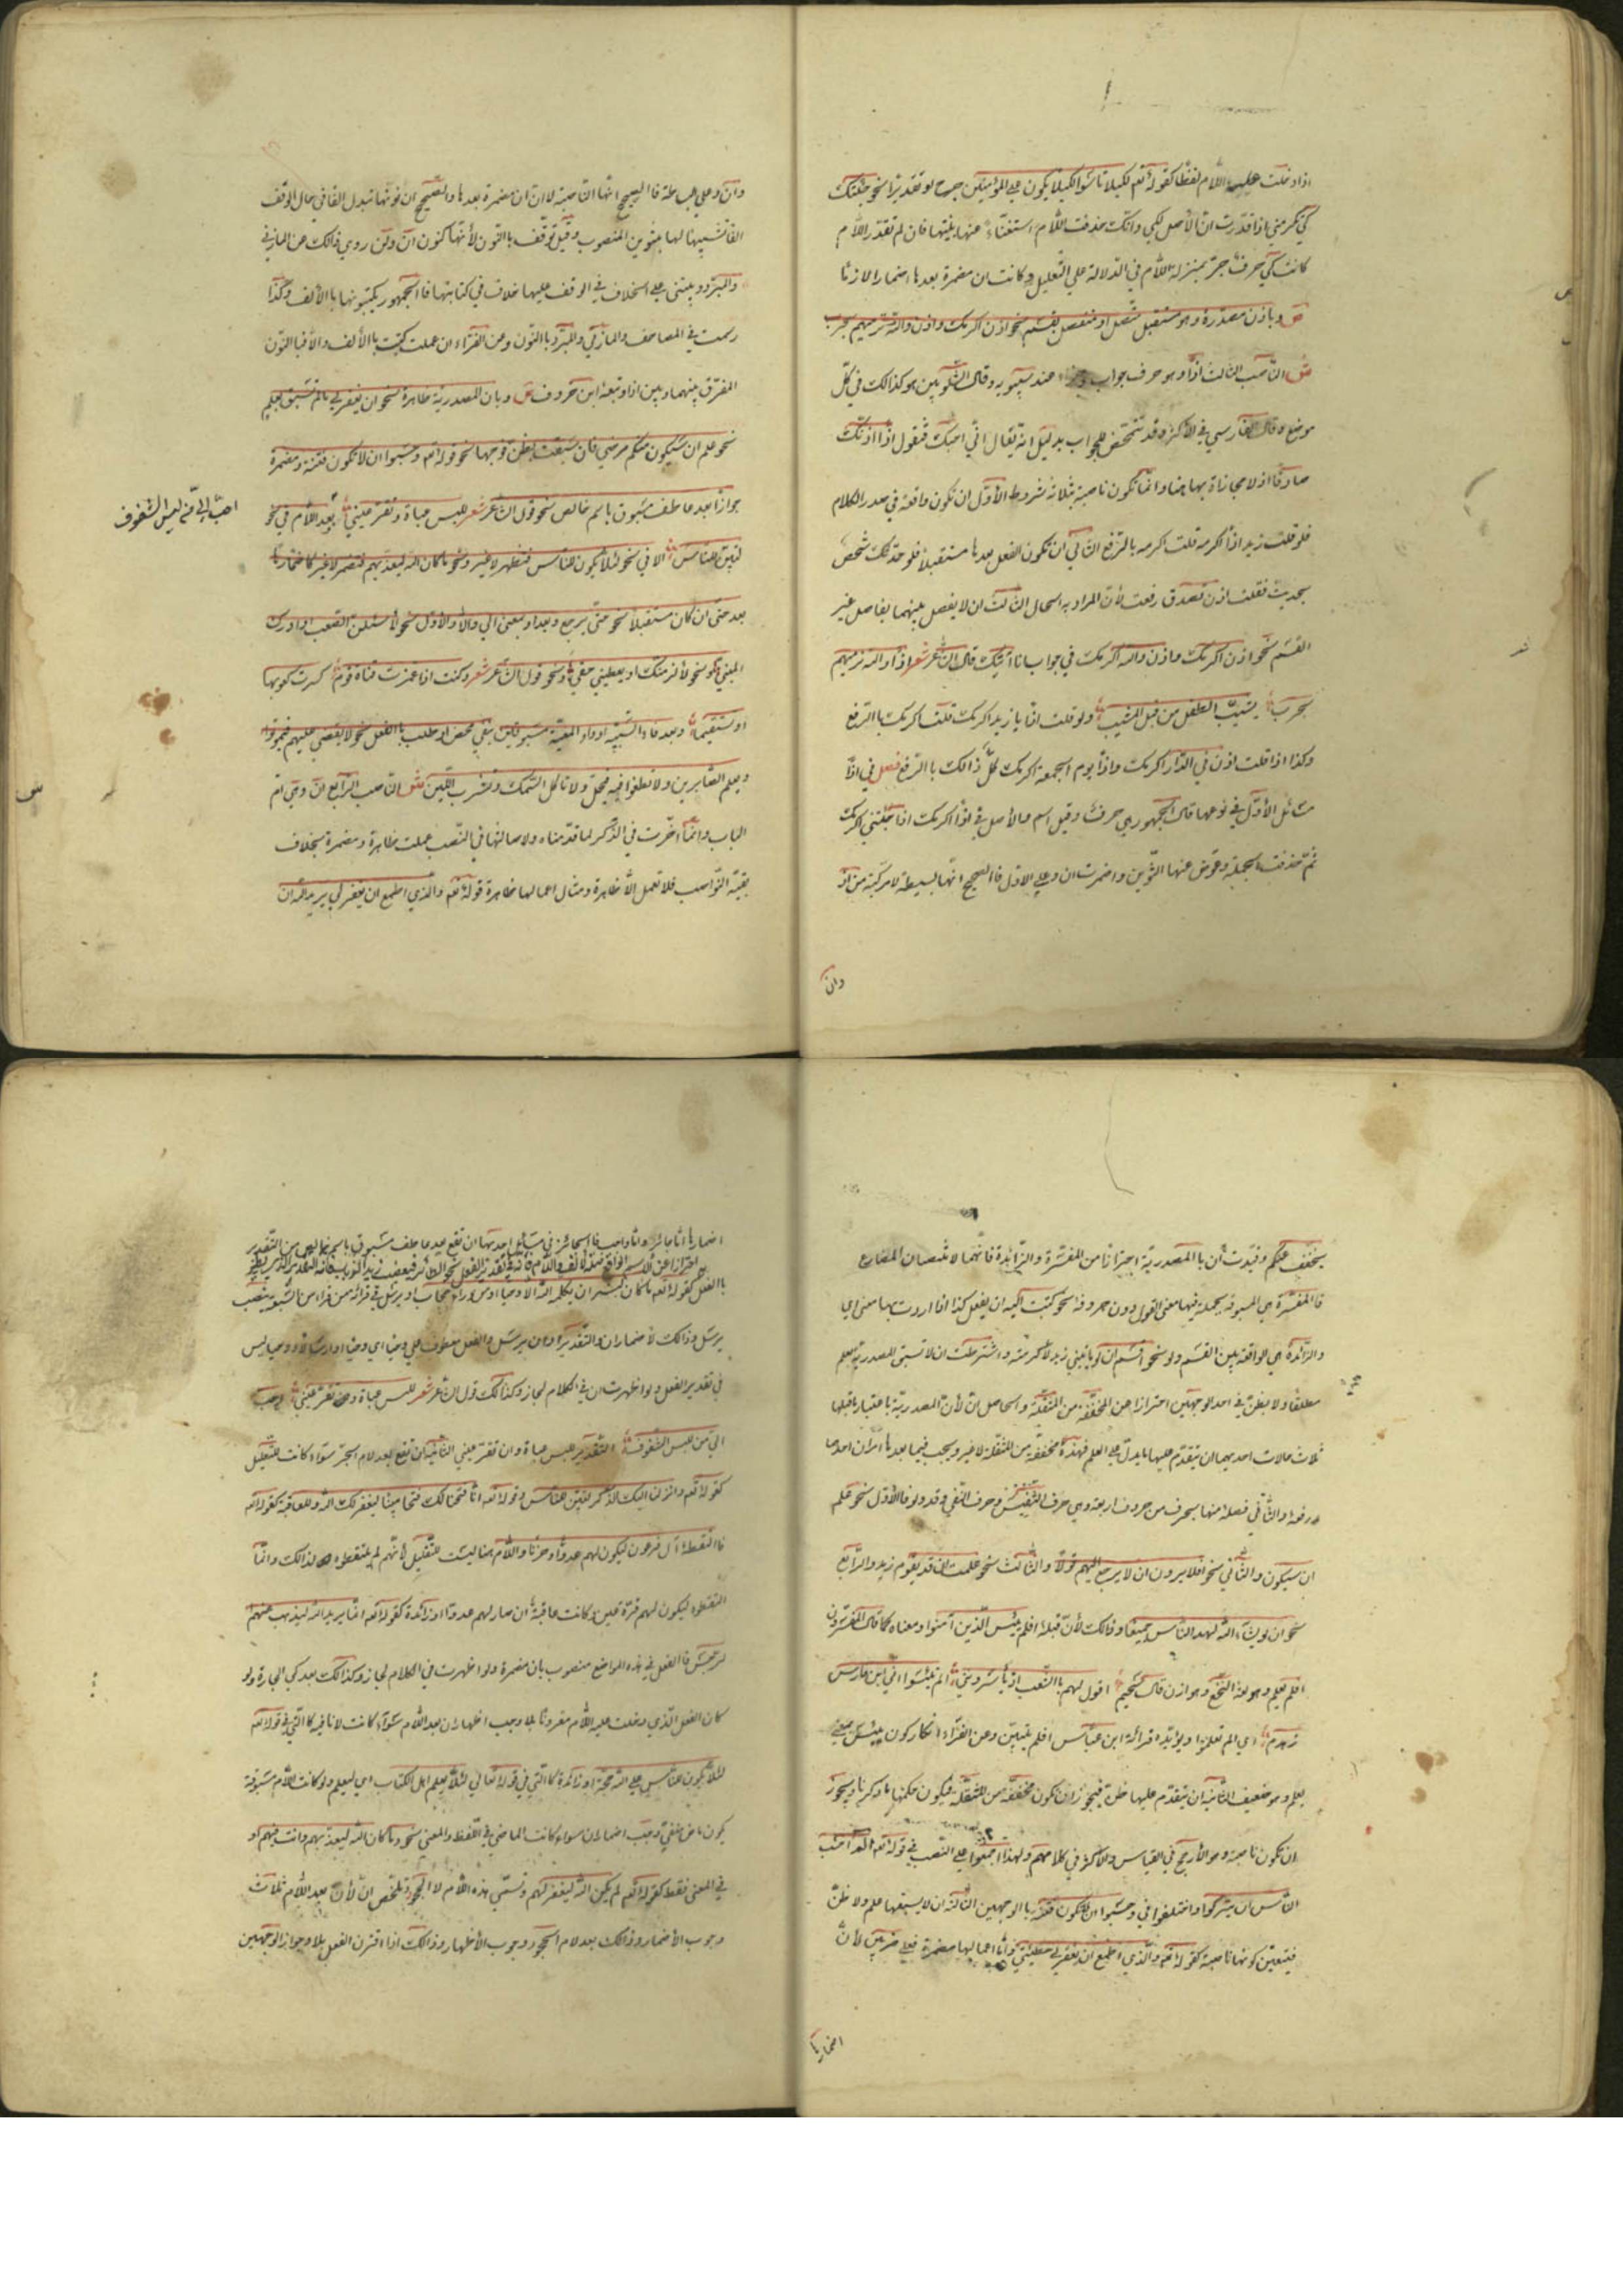 اذا دخلت عليها اللام لفظا كقوله تع لكيلا تأسوا لكيلا يكون على المؤمنين حرج او تقديرا نحو جئتك
كي تكرمني اذا قدرت ان الأصل لكي وانك حذفت اللام استغناء عنها بنيتها فان لم تقدر اللام
كانت كي حرف جر بمنزلة اللام في الدلالة على التعليل وكانت ان مضمرة بعدها اضمارا لازما
ص وباذن مصدرة وهو مستقبل متصل او منفصل بقسم نحو اذن اكرمك واذن والله نرميهم بحرب
ش الناصب الثالث اذا وهو حرف جواب وجزاء عند سيبويه وقال الشلوبين هو كذالك في كل
موضع وقال الفارسي في الأكثر وقد تتمحض للجواب بدليل انه يقال اني احبك فتقول اذا اظنك
صادقا اذ لا مجازاة بها هنا وانما تكون ناصبة بثلاثة شروط الأول ان تكون واقعة في صدر الكلام
فلو قلت زيد اذا اكرمه قلت اكرمه بالرفع الثاني ان يكون الفعل بعدها مستقبلا فلو حدثك شخص
بحديث فقلت اذن تصدق رفعت لأن المراد به الحال الثالث ان لا يفصل بينهما بفاصل غير
القسم نحو اذن اكرمك واذن والله اكرمك في جواب انا اتيك قال الشاعر شعر اذا والله نرميهم
بحرب يشيب الطفل من قبل المشيب ولو قلت اذا يا زيد اكرمك قلت اكرمك باالرفع
وكذا اذا قلت اذن في الدار اكرمك واذا يوم الجمعة اكرمك كل ذالك باالرفع فصل في اذا
مسائل الأول في نوعها قال الجمهور هي حرف وقيل اسم والأصل في اذا اكرمك اذا جئتني اكرمك
ثم حذفت الجملة وعوض عنها التنوين واضمرت ان وعلى الاول فاالصحيح انها بسيطة لا مركبة من اذ
وان
وان وعلى البساطة فاالصحيح انها الناصبة لا ان ان مضمرة بعدها والصحيح ان نونها تبدل الفا في حال الوقف
الفا تشبيها لها بتنوين المنصوب وقيل توقف باالنون لأنها كنون ان ولن روي ذالك عن المازني
والمبرد وينبني على الخلاف في الوقف عليها خلاف في كتابتها فاالجمهور يكتبونها باالألف وكذا
رسمت في المصاحف والمازني والمبرد باالنون وعن الفراء ان عملت كتبت باالألف والا فباالنون
المفرق بينهما وبين اذا وتبعه ابن خروف ص وبان المصدرية ظاهرة نحو ان يغفر لي مالم تسبق بعلم
نحو علم ان سيكون منكم مرضي فان سبقت بظن فوجهان نحو قوله تع وحسبوا ان لا تكون فتنة ومضمرة
جوازا بعد عاطف مسبوق باسم خالص نحو قول الشاعر شعر للبس عباءة وتقر عيني وبعد اللام في نحو
احب الي من لبس الشفوف
لتبين للناس الا في نحو لئلا يكون للناس فتظهر لا غير ونحو ما كان الله ليعذبهم فتضمر لا غير كاضمارها
بعد حتى ان كان مستقبلا نحو حتى يرجع وبعد او بمعنى الي والا والأول نحو لأستسهلن الصعب او ادرك
المني ونحو لألزمنك او يعطيني حقي ونحو قول الشاعر شعر وكنت اذا غمزت قناة قوم كسرت كعوبها
او تستقيما وبعد فاء السببية او واو المعية مسبوقين بنفي محض او طلب باالفعل نحو لا يقضي عليهم فيموتوا
ويعلم الصابرين ولا تطغوا فيه فيحل ولا تأكل السمك وتشرب اللبن ش الناصب الرابع ان وهي ام
الباب وانما اخرت في الذكر لما قدمناه ولاصالتها في النصب عملت ظاهرة ومضمرة بخلاف
بقية النواصب فلا تعمل الا ظاهرة ومثال اعمالها ظاهرة قوله تع والذي اطمع ان يغفر لي يريد الله ان
يخفف عنكم وقيدت ان باالمصدرية احترازا من المفسرة والزائدة فانهما لا تنصبان المضارع
فاالمفسرة هي المسبوقة بجملة فيها معنى القول دون حروفه نحو كتبت اليه ان يفعل كذا اذا اردت بها معنى اي
والزائدة هي الواقعة بين القسم ولو نحو اقسم ان لو يأتيني زيد لأكرمته واشترطت ان لا تسبق المصدرية بعلم
مطلقا ولا بظن في احد الوجهين احترازا عن المخففة من المثقلة والحاصل ان لأن المصدرية باعتبار ما قبلها
ثلاث حالات احديها ان يتقدم عليها ما يدل على العلم فهذه مخففة من المثقلة لا غير ويجب فيما بعدها امران احدهما
رفعه والثاني فصله منها بحرف من حروف اربعة وهي حرف التنفيس وحرف النفي وقد ولو فاالأول نحو علم
ان سيكون والثاني نحو افلا يرون ان لا يرجع اليهم قولا والثالث نحو علمت ان قد يقوم زيد والرابع
نحو ان لو يشاء الله لهدى الناس جميعا وذالك لأن قبله افلم يئيس الذين آمنوا ومعناه كما قال المفسرون
افلم يعلم وهو لغة النخع وهوازن قال سحيم اقول لهم باالشعب اذ يأسرونني الم تيئسوا اني ابن فارس
زهدم اي الم تعلموا ويؤيده قرائة ابن عباس افلم يتبين وعن الفراء انكار كون ييئس بمعنى
يعلم وهو ضعيف الثانية ان يتقدم عليها ظن فيجوز ان تكون مخففة من المثقلة فيكون حكمها ما ذكرنا ويجوز
ان تكون ناصبة وهو الأرجح في القياس والأكثر في كلامهم ولهذا اجمعوا على النصب في قوله تع الم احسب
الناس ان يتركوا واختلفوا في وحسبوا ان لا تكون فتنة باالوجهين الثالثة ان لا يسبقها علم ولا ظن
فيتعين كونها ناصبة كقوله تع والذي اطمع ان يغفر لي خطيئتي واما اعمالها مضمرة فعلى ضربين لأن
اضمارها
اضمارها اما جائز واما واجب فاالجائز في مسائل احديها ان تقع بعد عاطف مسبوق باسم خالص من التقدير
باالفعل كقوله تع ما كان لبشر ان يكلمه الله الا وحيا او من وراء حجاب او يرسل في قراءة من قراء من السبعة بنصب
يرسل وذالك لأضمار ان والتقدير او ان يرسل والفعل معطوف على وحيا اي وحيا او ارسالا ووحيا ليس
في تقدير الفعل ولو اظهرت ان في الكلام لجاز وكذالك قول الشاعر شعر للبس عباءة وتقر عيني احب
الي من لبس الشفوف التقدير للبس عباءة وان تقر عيني الثانية ان تقع بعد لام الجر سواء كانت للتعليل
كقوله تع وانزلنا اليك الذكر لتبين للناس وقوله تعه انا فتحنا لك فتحا مبينا ليغفر لك الله وللعاقبة كقوله تع
فاالتقطه آل فرعون ليكون لهم عدوا وحزنا واللام هنا ليست للتعليل لأنهم لم يلتقطوه لذالك وانما
التقطوه ليكون لهم قرة عين وكانت عاقبة ان صار لهم عدوا او زائدة كقوله تعه انما يريد الله ليذهب عنكم
الرجس فاالفعل في هذه المواضع منصوب بان مضمرة ولو اظهرت في الكلام لجاز وكذالك بعد كي الجارة ولو
كان الفعل الذي دخلت عليه اللام مقرونا بلا وجب اظهار ان بعد اللام سواء كانت لا نافية كاالتي في قوله تعه
لئلا يكون للناس على الله حجة او زائدة كاالتي في قوله تعالي لئلا يعلم اهل الكتاب اي ليعلم ولو كانت اللام مسبوقة
بكون ماض منفي وجب اضمار ان سواء كانت الماضي في اللفظ والمعنى نحو وما كان الله ليعذبهم وانت فيهم او
في المعنى فقط كقوله تعه لم يكن الله ليغفر لهم وتسمي هذه اللام لام الجحود وتلخص ان لأن بعد اللام ثلاث
وجوب الأضمار وذالك بعد لام الجحود ووجوب الأظهار وذالك اذا اقترن الفعل بلا وجواز الوجهين